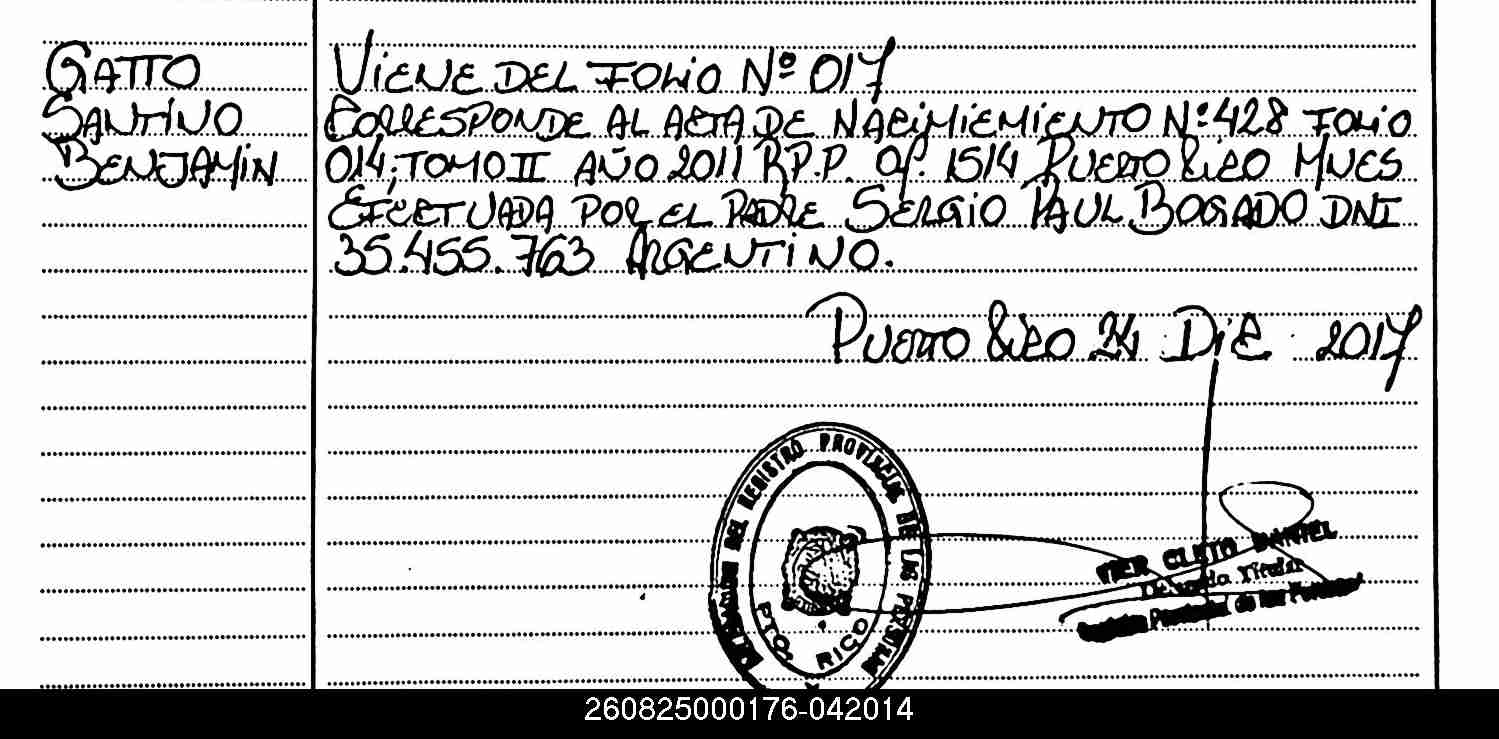 GATTO
SANTINO
BENJAMIN
VIENE DEL FOLIO Nº 017
CORRESPONDE AL ACTA DE NACIMIEMIENTO Nº 428 FOLIO
014; TOMO II AÑO 2011 RP.P. Of. 1514 PUERTO RICO MNES
EFECTUADA POR EL PADRE SERGIO PAUL BOGADO DNI
35.455.763 ARGENTINO.
PUERTO RICO 24 DIC 2017
DEL REGISTRO PROVINCIAL DE LAS PERSONAS
PTO. RICO
CLETO DANIEL
Titular
Provincial de las
260825000176-042014